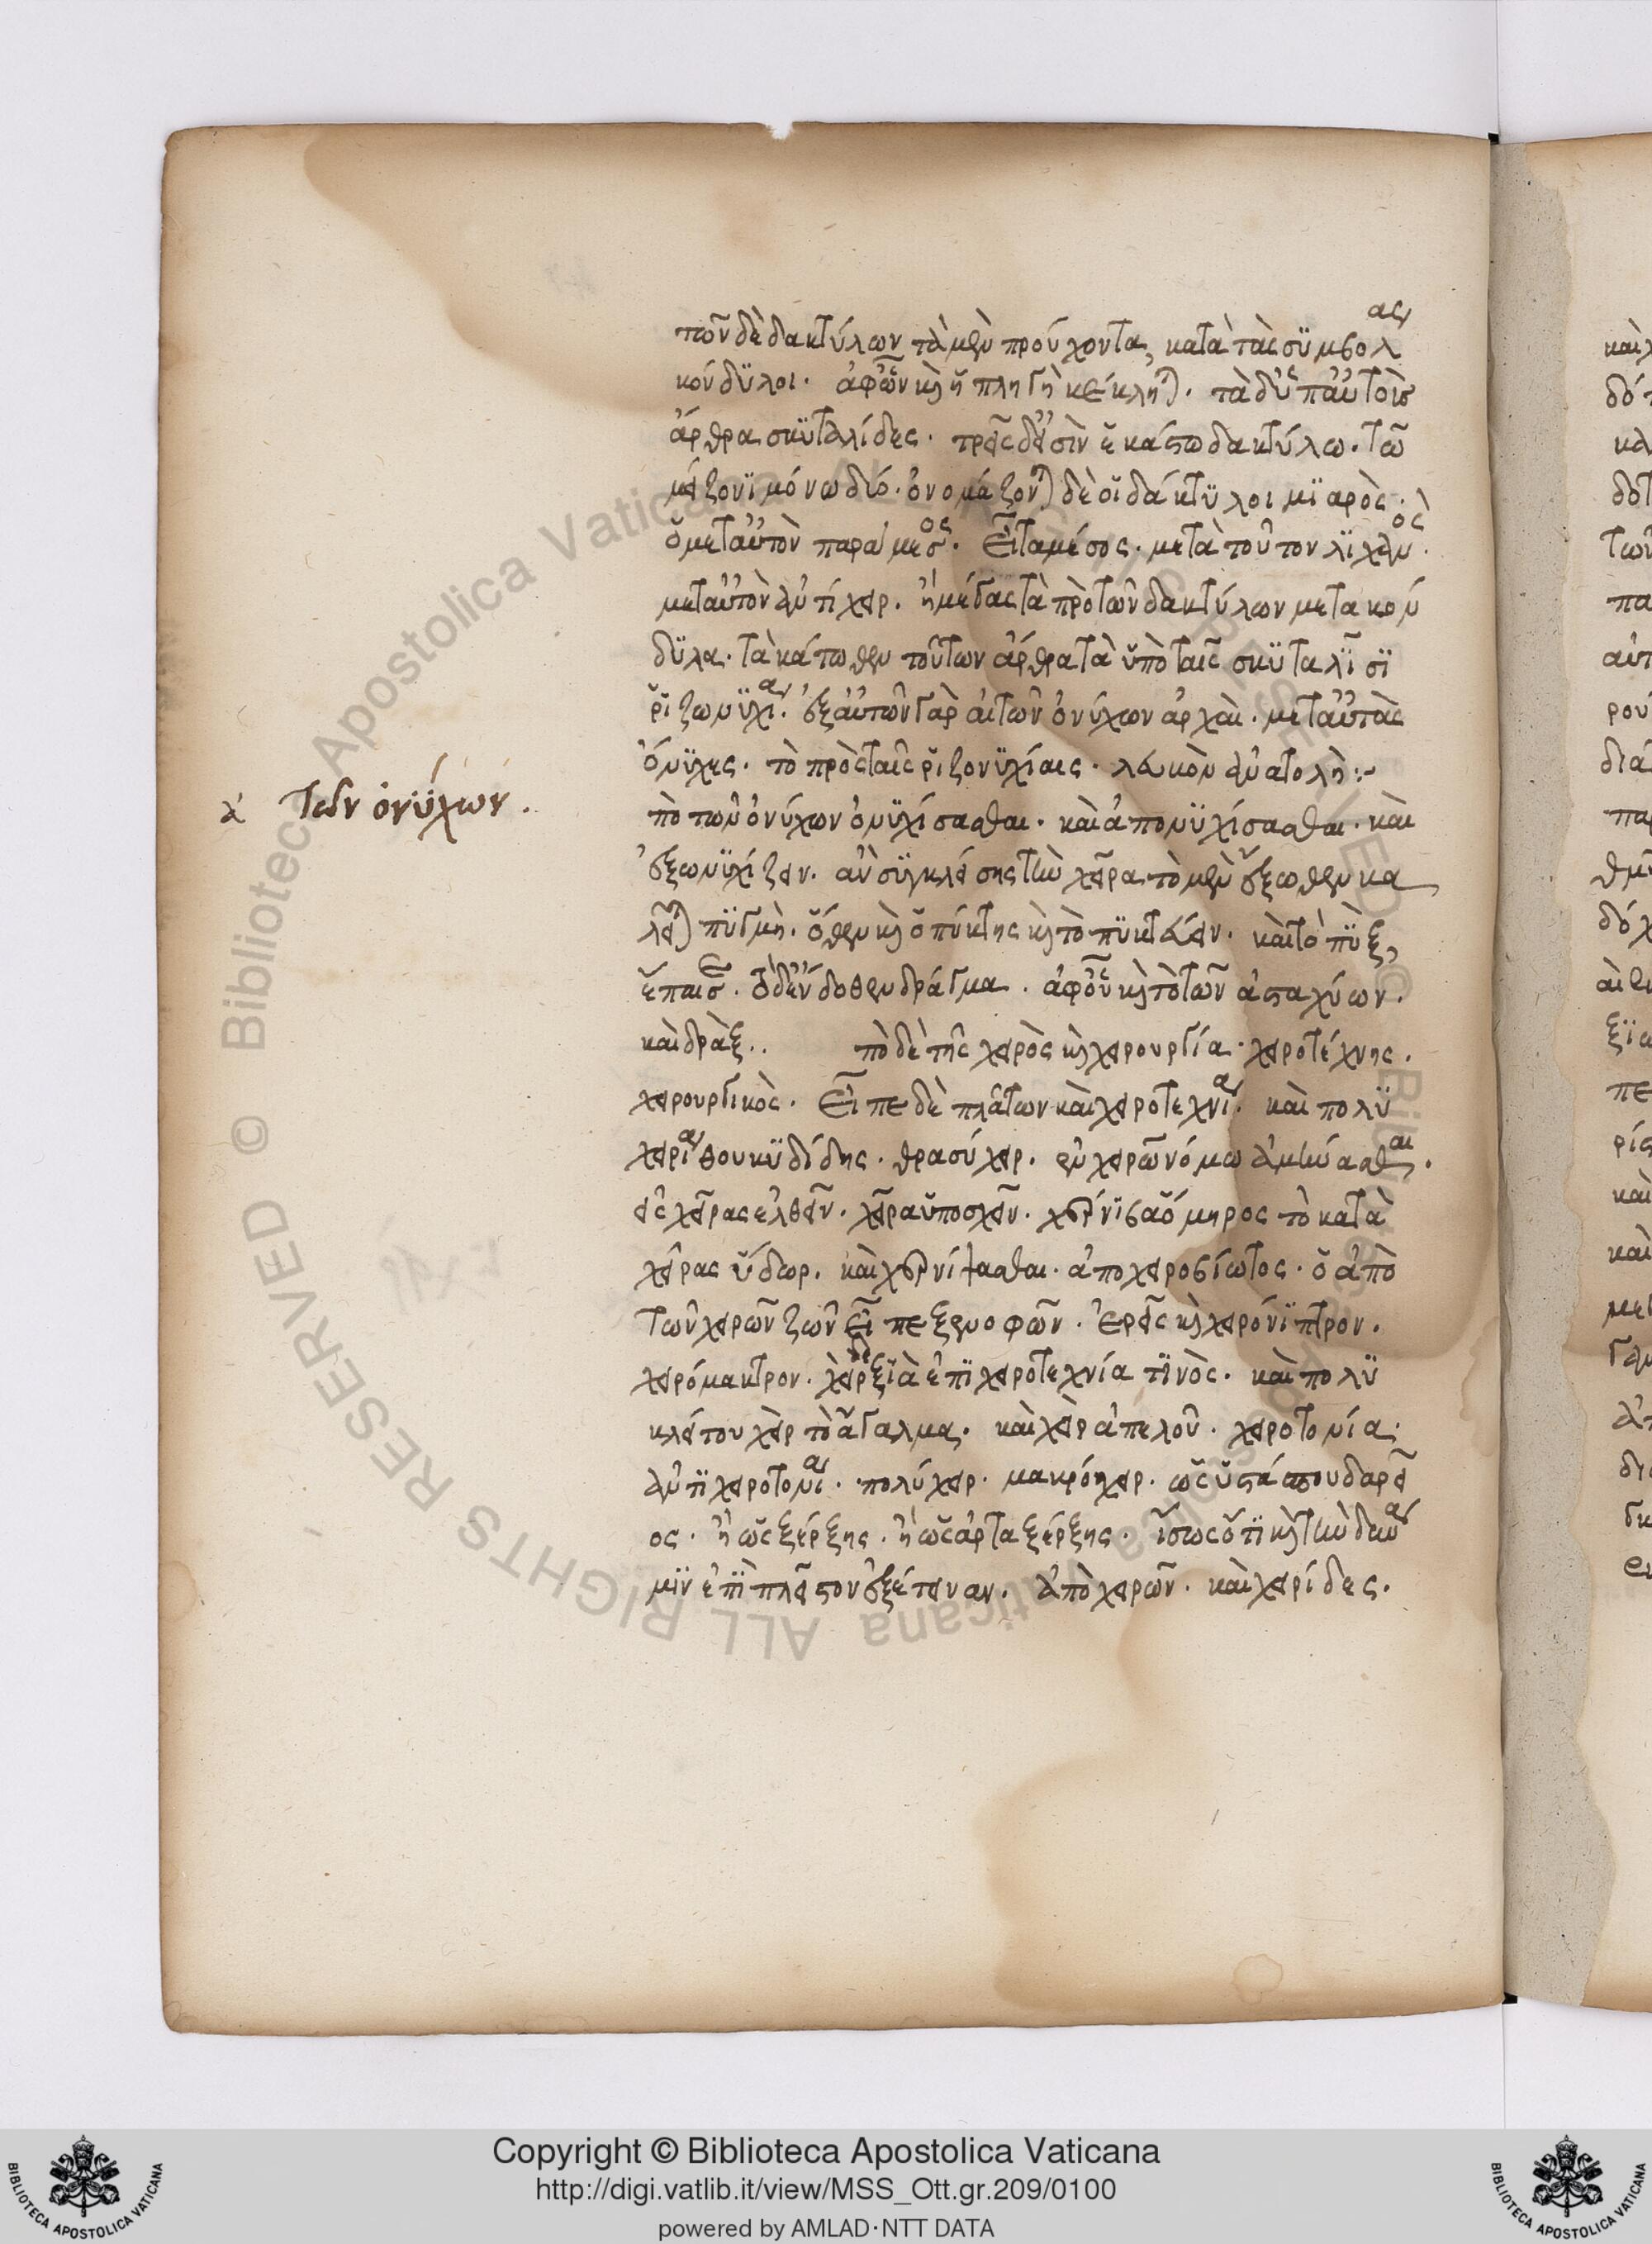 τῶν δὲ δακτύλων τὰ μὲν προύχοντα, κατὰ τὰς συμβολὰς
κόνδυλοι. ἀφ' ὧν καὶ ἡ πληγὴ κέκληται. τὰ δ' ὑπ' αὐτοῖς
ἄρθρα σκυταλίδες. τρεῖς δ' εἰσὶν ἑκάστω δακτύλω. τῶ
μείζονι μόνω δύο. ὀνομάζονται δὲ οἱ δάκτυλοι μιαρὸς.
ὁ μετ' αὐτὸν παράμεσος. εἶτα μέσος. μετὰ τοῦτον λιχανὸς.
μετ' αὐτὸν ἀντίχειρ. ἡ μέγας τὰ πρὸ τῶν δακτύλων μετακόν
δυλα. τὰ κάτωθεν τούτων ἄρθρα τὰ ὑπὸ ταῖς σκυταλίσι
ῥιζωνυχία. ἐξ αὐτῶν γὰρ αἱ τῶν ὀνύχων ἀρχαὶ. μετ' αὐτὰς
ὄνυχες. τὸ πρὸς ταῖς ῥιζονυχίαις. λευκὸν ἀνατολὴ:
ἀ Τῶν ὀνύχων.
πὸ τῶν ὀνύχων ὀνυχίσασθαι. καὶ ἀπονυχίσασθαι. καὶ
ἐξωνυχίζειν. ἂν συγκλείσης τὴν χεῖρα τὸ μὲν ἔξωθεν κα
λεῖται πυγμὴ. ὅθεν καὶ ὁ πύκτης καὶ τὸ πυκτεύειν. καὶ τὸ πὺξ,
ἔπαισε. τὸ δ' ἔνδοθεν δράγμα. ἀφ' οὗ καὶ τὸ τῶν ἀσταχύων.
καὶ δρὰξ.. πὸ δὲ τῆς χειρὸς καὶ χειρουργία. χειροτέχνης.
χειρουργικὸς. εἶπε δὲ πλάτων καὶ χειροτεχνία. καὶ πολυ
χειρία θουκυδίδης. θρασύχειρ. ἐν χειρῶν νόμω ἀμύνασθαι.
εἰς χεῖρας ἐλθεῖν. χεῖρα ὑποσχεῖν. χερνίβα ὅμηρος τὸ κατὰ
χεῖρας ὕδωρ. καὶ χερνίψασθαι. ἀποχειροβίωτος. ὁ ἀπὸ
τῶν χειρῶν ζῶν εἶπε ξενοφῶν. ἐρεῖς καὶ χειρόνιπτρον.
χειρόμακτρον. χεὶρ δεξιὰ ἐπὶ χειροτεχνία τινὸς. καὶ πολυ
κλείτου χεὶρ τὸ ἄγαλμα. καὶ χεὶρ ἀπελοῦ. χειροτονία.
ἀντιχειροτονία. πολύχειρ. μακρόχειρ. ὡς ὑστάσπου δαρεῖ
ος. ἢ ὡς ξέρξης. ἢ ὡς ἀρταξέρξης. ἴσως ὅτι καὶ τὴν δύνα
μιν ἐπὶ πλεῖστον ἐξέτειναν. ἀπὸ χειρῶν. καὶ χειρίδες.
Copyright © Biblioteca Apostolica Vaticana
http://digi.vatlib.it/view/MSS_Ott.gr.209/0100
powered by AMLAD·NTT DATA